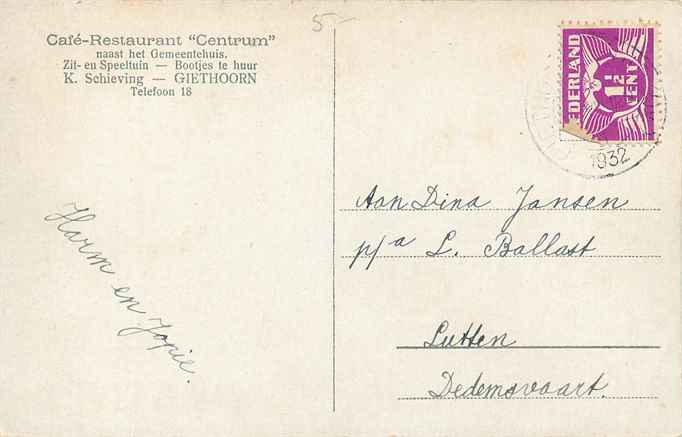 5-
Café-Restaurant "Centrum"
naast het Gemeentehuis.
Zit- en Speeltuin — Bootjes te huur
K. Schieving — GIETHOORN
Telefoon 18
NEDERLAND
1½
CENT
1932
Harm en Jopie.
Aan Dina Jansen
p/a L. Ballast
Lutten
Dedemsvaart.